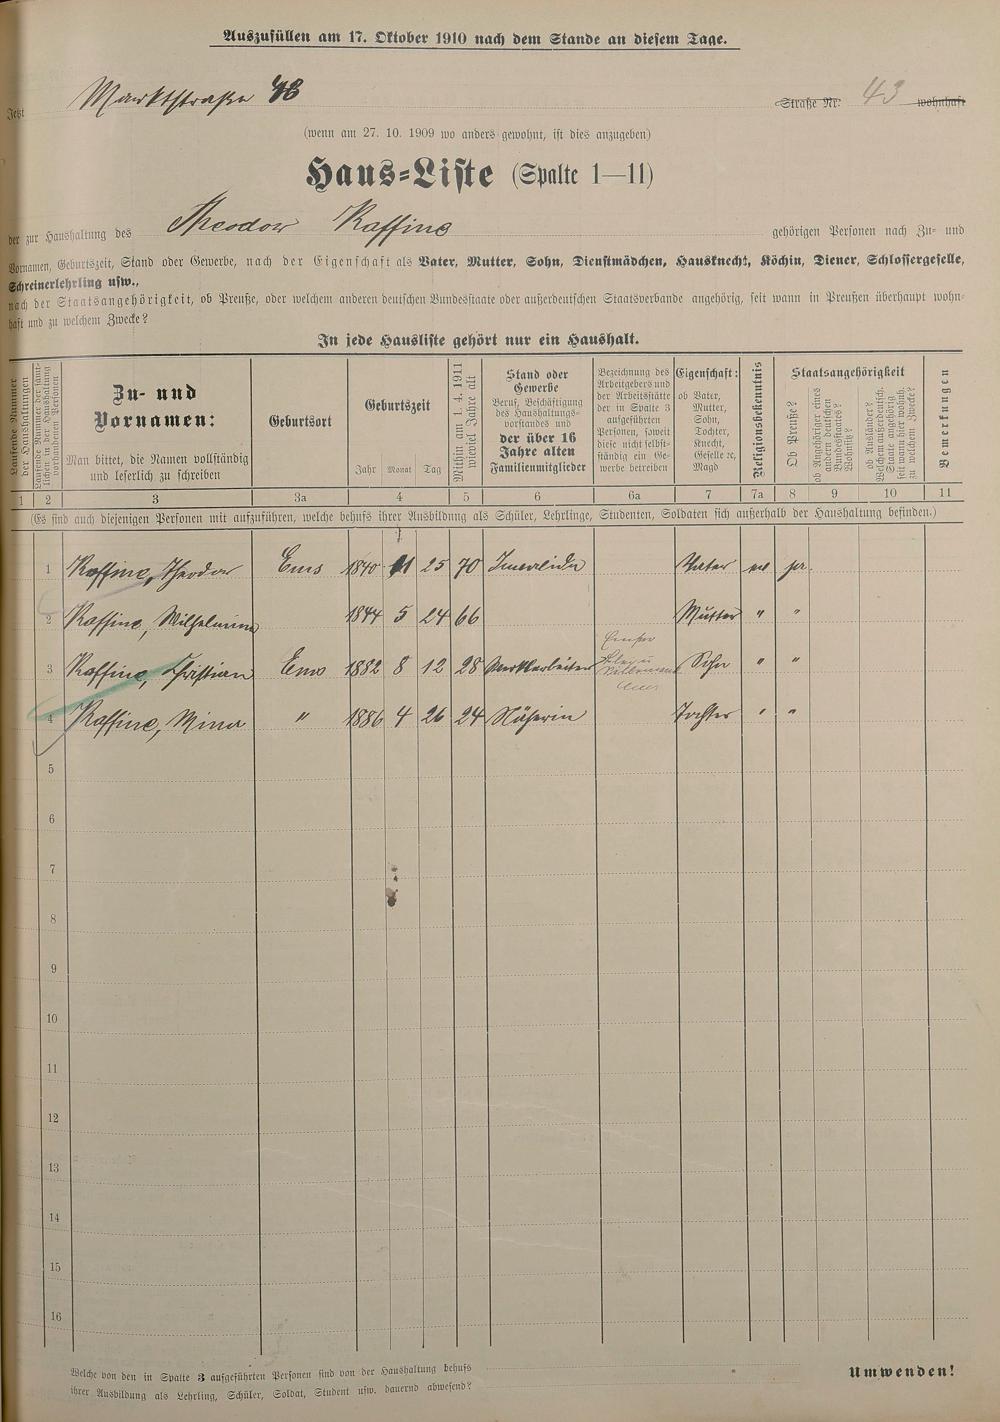 Auszufüllen am 17. Oktober 1910 nach dem Stande an diesem Tage.
Jetzt Marktstraße 43 Straße Nr. 43 wohnhaft
(wenn am 27. 10. 1909 wo anders gewohnt, ist dies anzugeben)
Haus-Liste (Spalte 1—11)
der zur Haushaltung des Theodor Kaffine gehörigen Personen nach Zu- und
Vornamen, Geburtszeit, Stand oder Gewerbe, nach der Eigenschaft als Vater, Mutter, Sohn, Dienstmädchen, Hausknecht, Köchin, Diener, Schlossergeselle,
Schreinerlehrling usw.,
nach der Staatsangehörigkeit, ob Preuße, oder welchem anderen deutschen Bundesstaate oder außerdeutschen Staatsverbande angehörig, seit wann in Preußen überhaupt wohn-
haft und zu welchem Zwecke?
In jede Hausliste gehört nur ein Haushalt.
Laufende Nummer
der Haushaltungen
Laufende Nummer der sämt-
lichen in der Haushaltung
vorhandenen Personen
Zu- und
Vornamen:
Man bittet, die Namen vollständig
und leserlich zu schreiben
Geburtsort
Geburtszeit
Jahr Monat Tag
Mithin am 1. 4. 1911
wieviel Jahre alt
Stand oder
Gewerbe
Beruf, Beschäftigung
des Haushaltungs-
vorstandes und
der über 16
Jahre alten
Familienmitglieder
Bezeichnung des
Arbeitgebers und
der Arbeitsstätte
der in Spalte 3
aufgeführten
Personen, soweit
diese nicht selbst-
ständig ein Ge-
werbe betreiben
Eigenschaft:
ob Vater,
Mutter,
Sohn,
Tochter,
Knecht,
Geselle ec,
Magd
Religionsbekenntnis
Staatsangehörigkeit
Ob Preuße?
ob Angehöriger eines
andern deutschen
Bundesstaates?
Wohnsitz?
ob Ausländer?
Welchem außerdeutsch.
Staate angehörig
seit wann hier wohnh.
zu welchem Zwecke?
Bemerkungen
1 2 3 3a 4 5 6 6a 7 7a 8 9 10 11
(Es sind auch diejenigen Personen mit aufzuführen, welche behufs ihrer Ausbildung als Schüler, Lehrlinge, Studenten, Soldaten sich außerhalb der Haushaltung befinden.)
1 Kaffine, Theodor Ems 1840 11 25 70 Invalide Vater ev pr.
2 Kaffine, Wilhelmine 1844 5 24 66 Mutter " "
3 Kaffine, Christian Ems 1882 8 12 28 Sohn " "
4 Kaffine, Mina " 1886 4 26 24 Näherin Tochter " "
5
6
7
8
9
10
11
12
13
14
15
16
Welche von den in Spalte 3 aufgeführten Personen sind von der Haushaltung behufs
ihrer Ausbildung als Lehrling, Schüler, Soldat, Student usw. dauernd abwesend?
Umwenden!